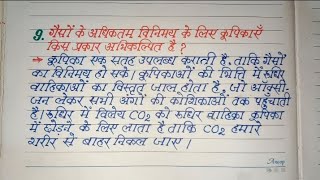 9. गैसों के अधिकतम विनिमय के लिए कूपिकाएँ
किस प्रकार अभिकल्पित है ?
→ कूपिका एक सतह उपलब्ध कराती है, ताकि गैसों
का विनिमय हो सके। कूपिकाओं की भित्ति में रुधिर
वाहिकाओं का विस्तृत जाल होता है, जो ऑक्सी-
जन लेकर सभी अंगों की कोशिकाओं तक पहुंचाती
है। रुधिर में विलेय CO2 को रुधिर वाहिका कूपिका
में छोड़ने के लिए लाता है ताकि CO2 हमारे
शरीर से बाहर निकल जाए।